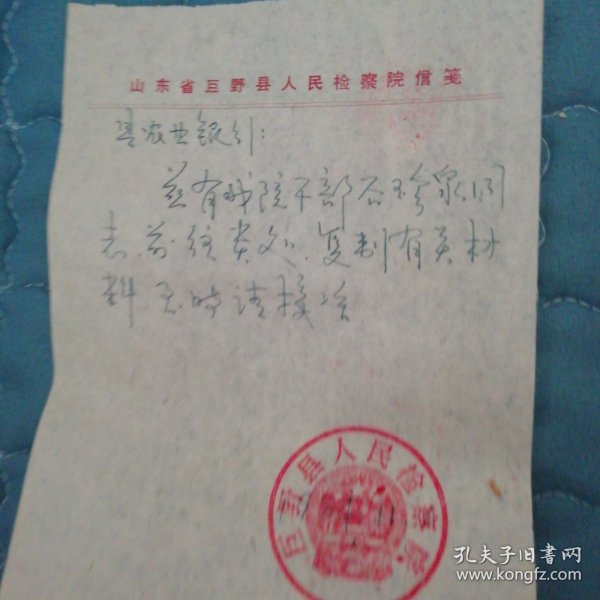 山东省巨野县人民检察院信笺
县农业银行：
兹有我院干部石玉拴同
志.前往贵处.复制有关材
料.至时请接洽
巨野县人民检察院
孔夫子旧书网
www.kongfz.com